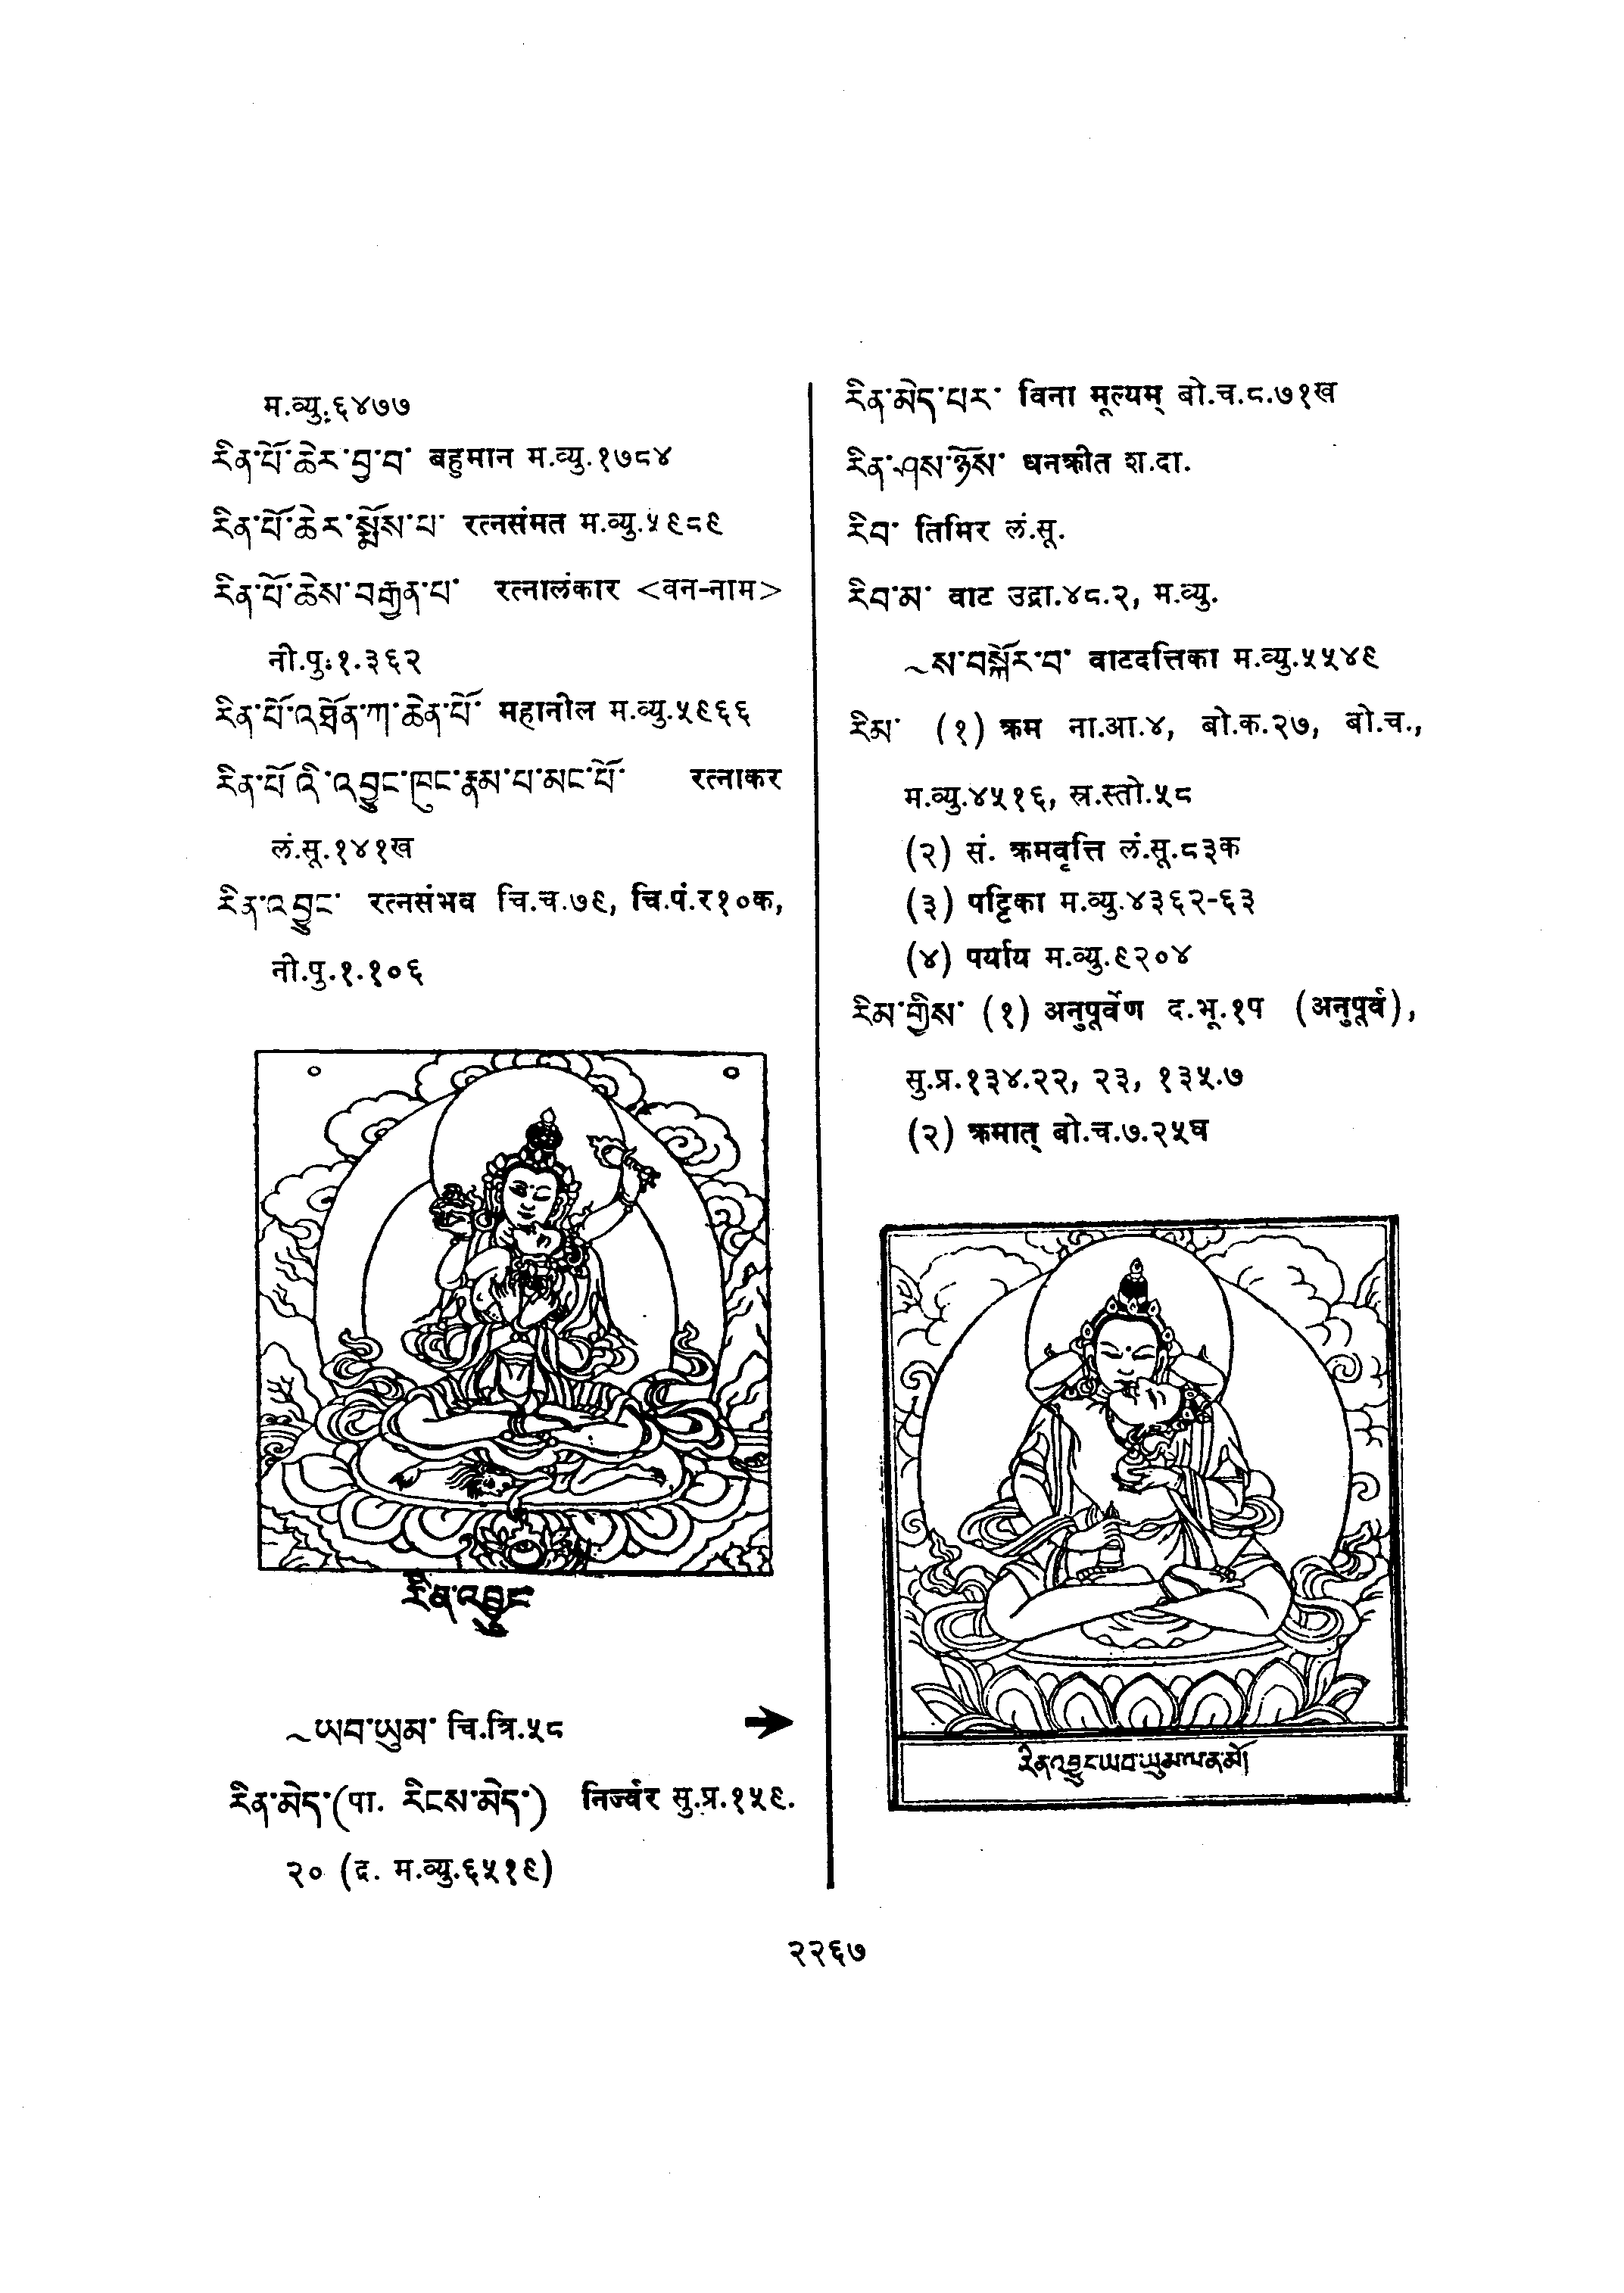 म.व्यु.६४७७
རིན་པོ་ཆེར་བྱ་བ་ बहुमान म.व्यु.१७८४
རིན་པོ་ཆེར་སྨོས་པ་ रत्नसंमत म.व्यु.५९८९
རིན་པོ་ཆེས་བརྒྱན་པ་ रत्नालंकार <वन-नाम>
नी.पु.१.३६२
རིན་པོ་འཐོན་ཀ་ཆེན་པོ་ महानील म.व्यु.५९६६
རིན་པོའི་འབྱུང་ཁུང་རྣམ་པ་མང་པོ་ रत्नाकर
लं.सू.१४१ख
རིན་འབྱུང་ रत्नसंभव चि.च.७९, चि.पं.र१०क,
नी.पु.१.१०६
རིན་འབྱུང
~ཡབ་ཡུམ་ चि.त्रि.५८ ➔
རིན་མེད་(पा. རིངས་མེད་) निर्ज्वर सु.प्र.१५९.
२० (द्र. म.व्यु.६५१९)
རིན་མེད་པར་ विना मूल्यम् बो.च.८.७१ख
རིན་ཤས་ཉོས་ धनक्रीत श.दा.
རིབ་ तिमिर लं.सू.
རིབ་མ་ वाट उद्रा.४८.२, म.व्यु.
~ས་བསྐོར་བ་ वाटदत्तिका म.व्यु.५५४९
རིམ་ (१) क्रम ना.आ.४, बो.क.२७, बो.च.,
म.व्यु.४५१६, स्र.स्तो.५८
(२) सं. क्रमवृत्ति लं.सू.८३क
(३) पट्टिका म.व्यु.४३६२-६३
(४) पर्याय म.व्यु.९२०४
རིམ་གྱིས་ (१) अनुपूर्वेण द.भू.१प (अनुपूर्व),
सु.प्र.१३४.२२, २३, १३५.७
(२) क्रमात् बो.च.७.२५घ
རིནའབྱུངཡབཡུམལནམོ།
२२६७